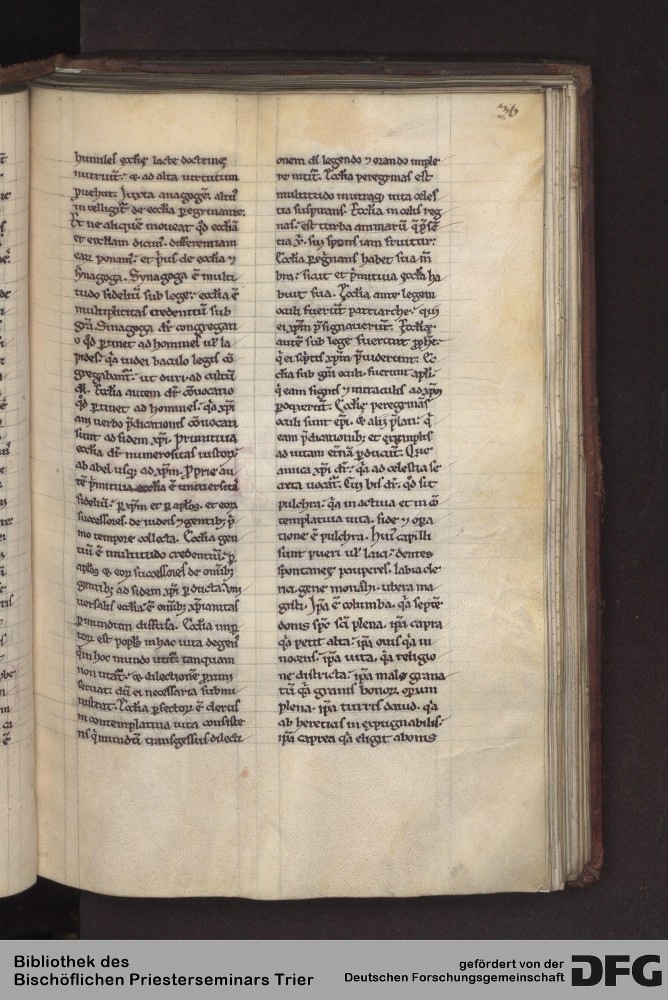 36
humiles ęcclię lacte doctrinę
nutruit. & ad alta uirtutum
ꝓuehit. Iuxta anagogen̄. altiꝰ
intelligit̄ de ecclia ꝑegrinante.
Et ne aliquē moueat qd̄ ecclia
et ecclia dicim̄. differentiam
earū ponam̄. et pͥus de ecclia ⁊
synagoga. Synagoga ē multi
tudo fideliū sub lege. ecclia ē
multiplicitas credentiū sub
gr̄a. Sinagoga dr̄ congregati
o qd̄ ꝑtinet ad homines ul̄ la
pides. qͣ iudei baculo legis cō
gregabant̄. ut duri. ad cultū
dī. Ecclia autem dr̄ cōuocatio
qd̄ ꝑtinet ad homines. qͣ xp̄i
ani uerbo p̄dicationis cōuocati
sunt ad fidem xp̄i. Primitiua
ecclia dr̄ numerositas iustorꝝ
ab abel usqꝫ ad xp̄m. Proprie au
tē p̄mitiua ecclia ē uniuersitas
fideliū. ꝑ xp̄m et ꝑ aplos. et eorū
successores de iudeis ⁊ gentibꝫ pͥ
mo tempore collecta. Ecclia gen
tiū ē multitudo credentiū. ꝑ
aplos & eorꝫ successores de om̄ibꝫ
gentibꝫ ad fidem xp̄i ꝑducta. Uni
uersalis ecclia ē om̄ibꝫ xp̄ianitas
ꝑ mundum diffusa. Ecclia imꝑfec
torꝫ est popls in hac uita degens
qui hoc mundo utit̄ tanquam
non utat̄. & dilectionē proximi
seruat. dū ei necessaria submi
nistrat. Ecclia ꝑfectorꝫ ē clerus
in contemplatiua uita consiste
ns qͥ mundū transgressus dilecti
onem dī legendo ⁊ orando imple
re nitit̄. Ecclia peregrinas est
multitudo in utraqꝫ uita celes
tia suspirans. Ecclia in celis reg
nās. est turba animarū
tia x̄. sui sponsi iam fruitur.
Ecclia ꝑegͥnans habet sua m̄
bra. sicut et p̄mitiua ęcclia ha
buit sua. Ecclię ante legem
oculi fuerūt patriarche. qui
ei xp̄m p̄signauerūt. Ecclię
autē sub lege fuerunt ꝓphe.
qͥ ei scͥptis xp̄m p̄uiderunt. Ec
clię sub gr̄a oculi. fuerunt apli.
qͥ eam signis ⁊ miraculis ad xp̄m
ꝑduxerūt. Ecclię peregrinās
oculi sunt ep̄i. & alii p̄lati. qͥ
eam p̄dicationibꝫ et exemplis
ad uitam etnā ꝑducūt. Quę
amica xp̄i dr̄. qͣ ad celestia se
creta uocat̄. Cui bis dr̄. qd̄ sit
pulchra. qͣ in actiua et in cō
templatiua uita. fide ⁊ opera
tione ē pulchra. Huiꝰ capilli
sunt pueri ul̄ laici. dentes
spontaneę pauperes. labia cle
rici. gene monachi. ubera ma
gistri. Ipa ē columba. qͣ septē
donis spc scī plena. ipa capra
qͣ petit alta. ipa ouis qͣ in
nocens. ipa uita. qͣ religio
ne districta. ipa male grana
tū qͣ granis bonorꝫ operum
plena. ipa turris dauid. qͣ
ab hereticis inexpugnabilis.
ipa caprea qͣ eligit a bonis
Bibliothek des
Bischöflichen Priesterseminars Trier
gefördert von der
Deutschen Forschungsgemeinschaft
DFG